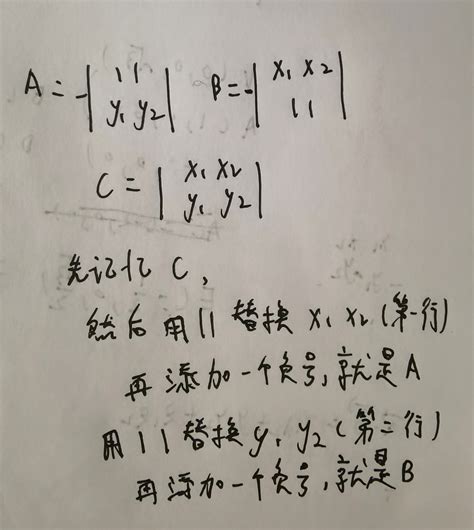 A = -| 1 1 | B = -| x₁ x₂ |
| y₁ y₂ | | 1 1 |
C = | x₁ x₂ |
| y₁ y₂ |
先记忆 C,
然后用 1 1 替换 x₁ x₂ (第一行)
再添加一个负号,就是A
用 1 1 替换 y₁ y₂ (第二行)
再添加一个负号,就是B